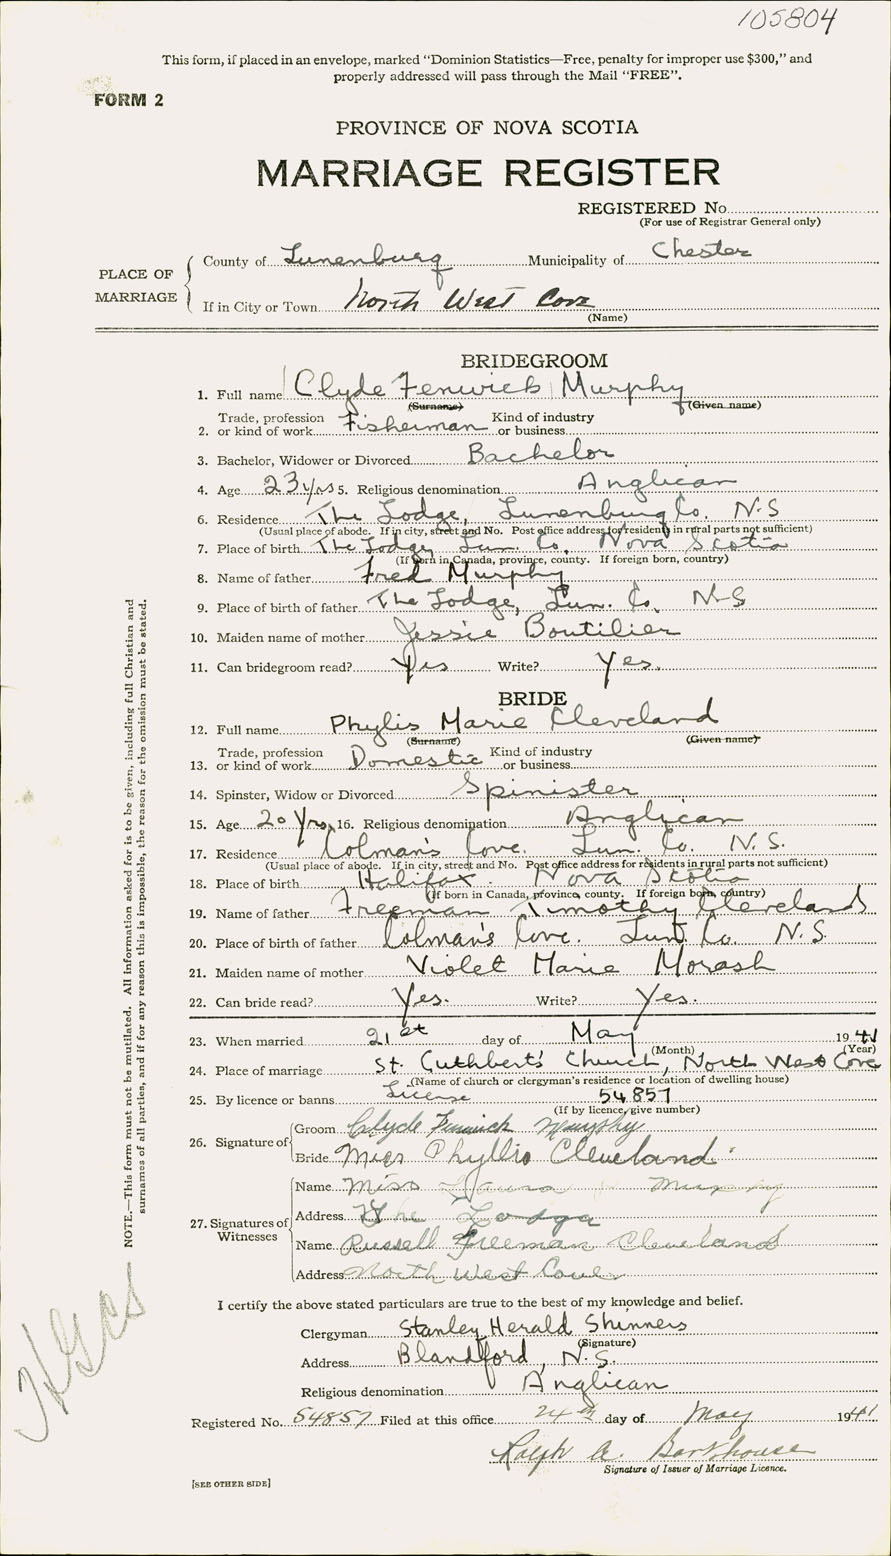 105804
This form, if placed in an envelope, marked “Dominion Statistics—Free, penalty for improper use $300,” and
properly addressed will pass through the Mail “FREE”.
FORM 2
PROVINCE OF NOVA SCOTIA
MARRIAGE REGISTER
REGISTERED No.
(For use of Registrar General only)
PLACE OF MARRIAGE
County of Lunenburg Municipality of Chester
If in City or Town North West Cove
(Name)
BRIDEGROOM
1. Full name Clyde Fenwick Murphy
(Surname) (Given name)
2. Trade, profession or kind of work Fisherman Kind of industry or business
3. Bachelor, Widower or Divorced Bachelor
4. Age 23 yrs 5. Religious denomination Anglican
6. Residence The Lodge, Lunenburg Co. N.S
(Usual place of abode. If in city, street and No. Post office address for residents in rural parts not sufficient)
7. Place of birth The Lodge, Lun. Co, Nova Scotia
(If born in Canada, province, county. If foreign born, country)
8. Name of father Fred Murphy
9. Place of birth of father The Lodge, Lun. Co, N.S
10. Maiden name of mother Jessie Boutilier
11. Can bridegroom read? Yes Write? Yes.
BRIDE
12. Full name Phylis Marie Cleveland
(Surname) (Given name)
13. Trade, profession or kind of work Domestic Kind of industry or business
14. Spinster, Widow or Divorced Spinister
15. Age 20 Yrs, 16. Religious denomination Anglican
17. Residence Colman's Cove. Lun. Co. N.S.
(Usual place of abode. If in city, street and No. Post office address for residents in rural parts not sufficient)
18. Place of birth Halifax. Nova Scotia
(If born in Canada, province, county. If foreign born, country)
19. Name of father Freeman Timothy Cleveland
20. Place of birth of father Colman's Cove. Lun. Co. N.S.
21. Maiden name of mother Violet Marie Morash
22. Can bride read? Yes. Write? Yes.
23. When married 21st day of May 1941
(Month) (Year)
24. Place of marriage St. Cuthbert's Church, North West Cove
(Name of church or clergyman's residence or location of dwelling house)
25. By licence or banns License 54857
(If by licence, give number)
26. Signature of
Groom Clyde Fenwick Murphy
Bride Miss Phyllis Cleveland
27. Signatures of Witnesses
Name Miss Murphy
Address The Lodge
Name Russell Freeman Cleveland
Address North West Cove
I certify the above stated particulars are true to the best of my knowledge and belief.
Clergyman Stanley Herald Shinners
(Signature)
Address Blandford, N.S.
Religious denomination Anglican
Registered No. 54857 Filed at this office 24th day of May 1941
Ralph A. Barkhouse
Signature of Issuer of Marriage Licence.
[SEE OTHER SIDE]
NOTE.—This form must not be mutilated. All information asked for is to be given, including full Christian and
surnames of all parties, and if for any reason this is impossible, the reason for the omission must be stated.